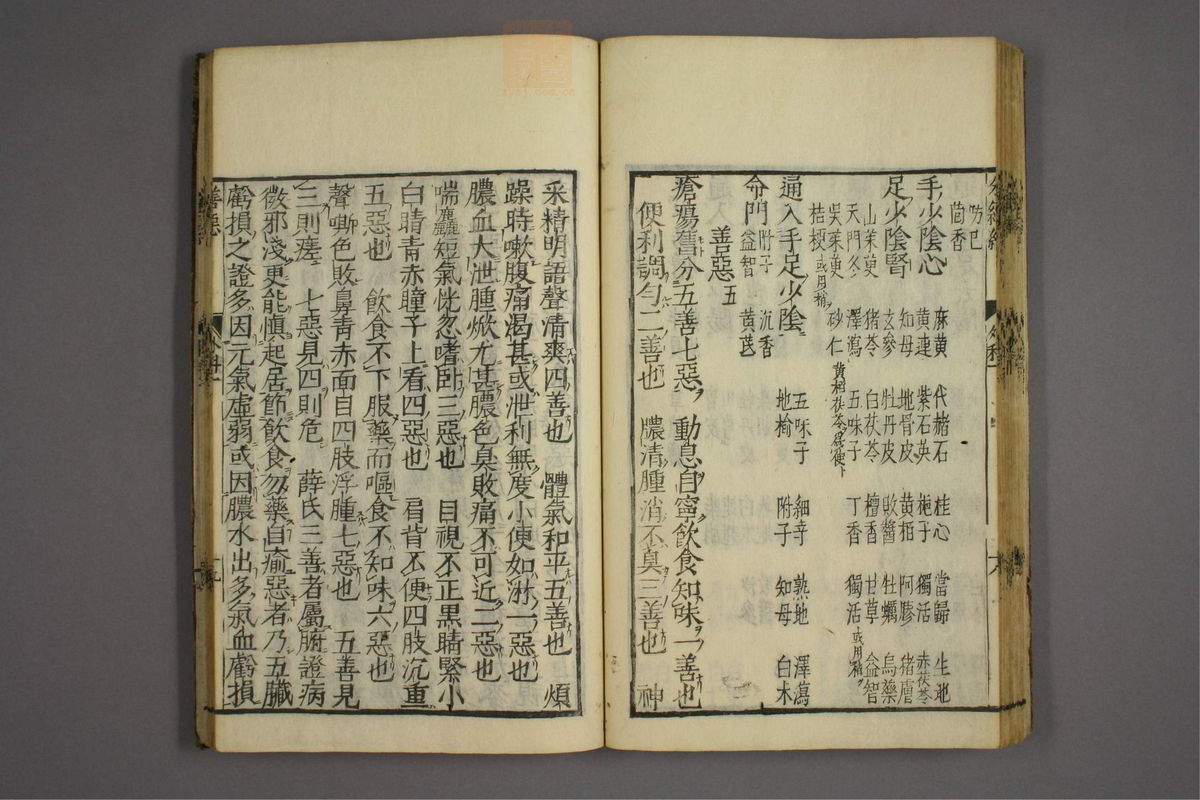 防巳
茴香
手少陰心
麻黃 代赭石 桂心 當歸 生地
黃連 紫石英 梔子 獨活 赤茯苓
足少陰腎
知母 地骨皮 黃栢 阿膠 猪膚
玄參 牡丹皮 敗醬 牡蠣 烏藥
山茱萸 猪苓 白茯苓 檀香 甘草 益智
天門冬 澤瀉 五味子 丁香 獨活或用稍
吳茱萸 砂仁黃栢茯苓為使
桔梗或用稍
通入手足少陰
五味子 細辛 熟地 澤瀉
地榆 附子 知母 白朮
命門
附子 沉香
益智 黃芪
善惡五
瘡瘍舊分五善七惡 動息自寧飲食知味一善也
便利調勻二善也 膿清腫消不臭三善也 神
采精明語聲清爽四善也 體氣和平五善也 煩
躁時嗽腹痛渴甚或泄利無度小便如淋一惡也
膿血大泄腫焮尤甚膿色臭敗痛不可近二惡也
喘麤短氣恍忽嗜卧三惡也 目視不正黑睛緊小
白睛青赤瞳子上看四惡也 肩背不便四肢沉重
五惡也 飲食不下服藥而嘔食不知味六惡也
聲嘶色敗鼻青赤面目四肢浮腫七惡也 五善見
三則瘥 七惡見四則危 薛氏三善者屬腑證病
微邪淺更能慎起居節飲食勿藥自痊惡者乃五臟
虧損之證多因元氣虛弱或因膿水出多氣血虧損
善惡